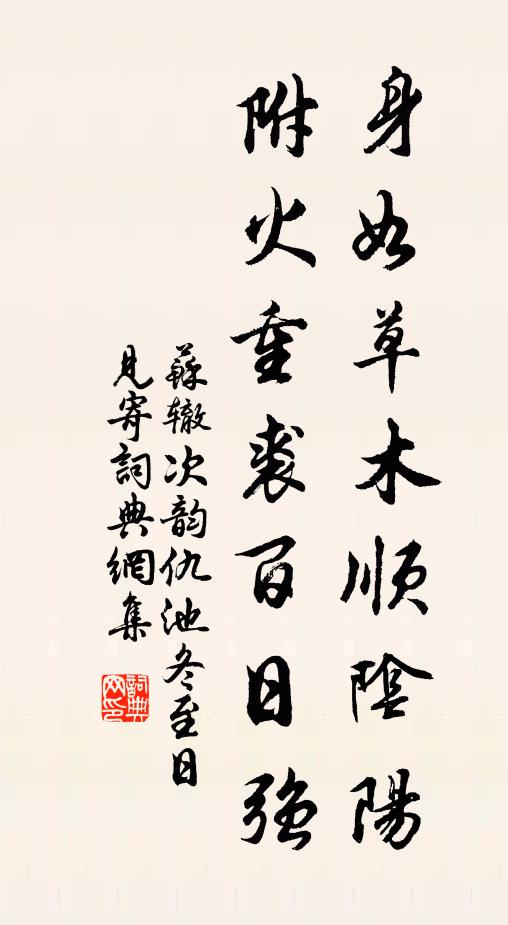 身如草木順陰陽
附火重裘百日強
蘇辙次韵仇池冬至日
見寄詞典網集
詞典
网印